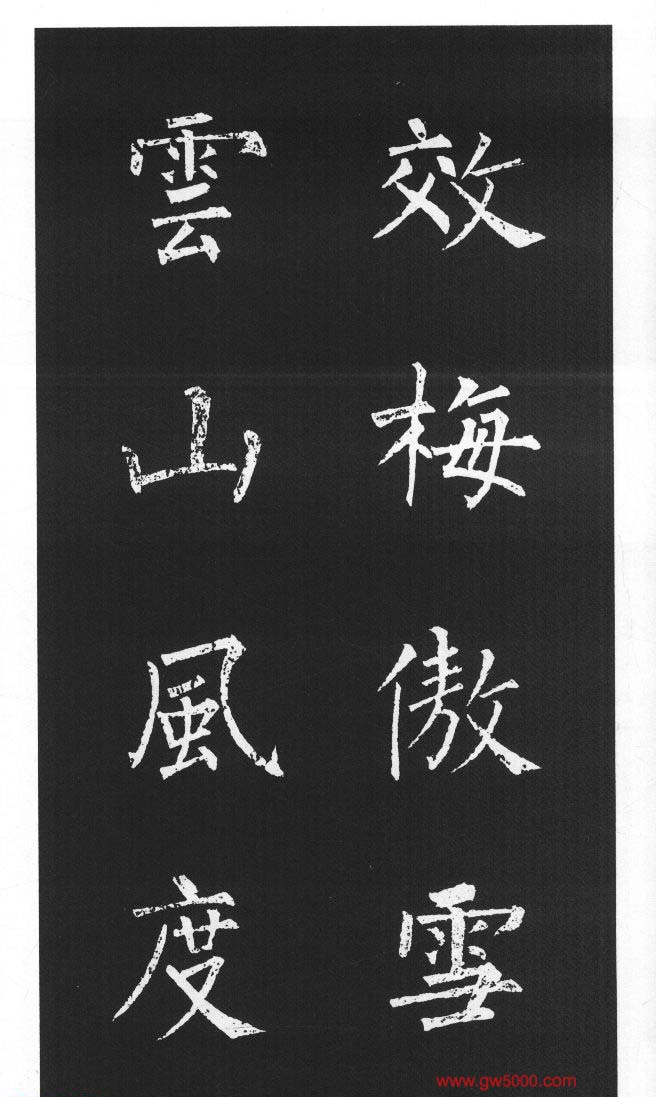 效梅傲雪
雲山風度
www.gw5000.com